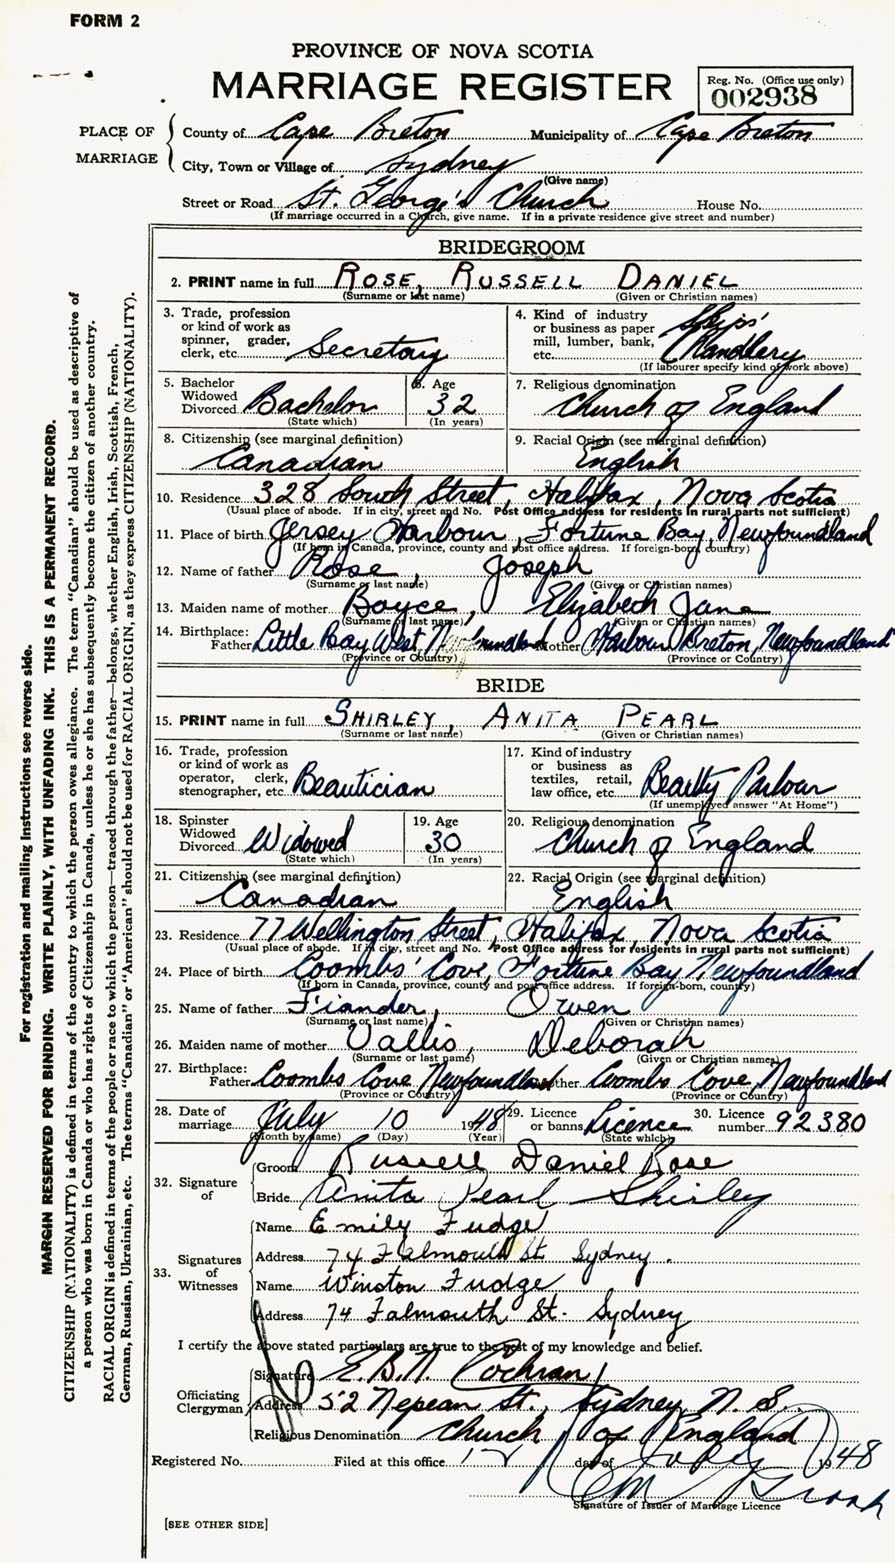 FORM 2
PROVINCE OF NOVA SCOTIA
MARRIAGE REGISTER
Reg. No. (Office use only)
002938
PLACE OF MARRIAGE
County of Cape Breton Municipality of Cape Breton
City, Town or Village of Sydney
(Give name)
Street or Road St. George's Church House No.
(If marriage occurred in a Church, give name. If in a private residence give street and number)
BRIDEGROOM
2. PRINT name in full ROSE, RUSSELL DANIEL
(Surname or last name) (Given or Christian names)
3. Trade, profession or kind of work as spinner, grader, clerk, etc. Secretary
4. Kind of industry or business as paper mill, lumber, bank, etc. Ships' Chandlery
(If labourer specify kind of work above)
5. Bachelor Widowed Divorced Bachelor
(State which)
6. Age 32
(In years)
7. Religious denomination
Church of England
8. Citizenship (see marginal definition)
Canadian
9. Racial Origin (see marginal definition)
English
10. Residence 328 South Street, Halifax, Nova Scotia
(Usual place of abode. If in city, street and No. Post Office address for residents in rural parts not sufficient)
11. Place of birth Jersey Harbour, Fortune Bay, Newfoundland
(If born in Canada, province, county and post office address. If foreign-born, country)
12. Name of father Rose, Joseph
(Surname or last name) (Given or Christian names)
13. Maiden name of mother Boyce, Elizabeth Jane
(Surname or last name) (Given or Christian names)
14. Birthplace: Father Little Bay West, Newfoundland Mother Harbour Breton, Newfoundland
(Province or Country) (Province or Country)
BRIDE
15. PRINT name in full SHIRLEY, ANITA PEARL
(Surname or last name) (Given or Christian names)
16. Trade, profession or kind of work as operator, clerk, stenographer, etc. Beautician
17. Kind of industry or business as textiles, retail, law office, etc. Beauty Parlour
(If unemployed answer "At Home")
18. Spinster Widowed Divorced Widowed
(State which)
19. Age 30
(In years)
20. Religious denomination
Church of England
21. Citizenship (see marginal definition)
Canadian
22. Racial Origin (see marginal definition)
English
23. Residence 77 Wellington Street, Halifax, Nova Scotia
(Usual place of abode. If in city, street and No. Post Office address for residents in rural parts not sufficient)
24. Place of birth Coombs' Cove, Fortune Bay Newfoundland
(If born in Canada, province, county and post office address. If foreign-born, country)
25. Name of father Fiander, Owen
(Surname or last name) (Given or Christian names)
26. Maiden name of mother Vallis, Deborah
(Surname or last name) (Given or Christian names)
27. Birthplace: Father Coombs Cove Newfoundland Mother Coombs Cove, Newfoundland
(Province or Country) (Province or Country)
28. Date of marriage July 10 1948
(Month by name) (Day) (Year)
29. Licence or banns Licence
(State which)
30. Licence number 92380
32. Signature of
Groom Russell Daniel Rose
Bride Anita Pearl Shirley
33. Signatures of Witnesses
Name Emily Fudge
Address 74 Falmouth St. Sydney.
Name Winston Fudge
Address 74 Falmouth St. Sydney
I certify the above stated particulars are true to the best of my knowledge and belief.
Officiating Clergyman
Signature E.B.N. Cochran
Address 52 Nepean St., Sydney, N. S.
Religious Denomination Church of England
Registered No. Filed at this office 12 day of July 1948
Signature of Issuer of Marriage Licence
[SEE OTHER SIDE]
For registration and mailing instructions see reverse side.
MARGIN RESERVED FOR BINDING. WRITE PLAINLY, WITH UNFADING INK. THIS IS A PERMANENT RECORD.
CITIZENSHIP (NATIONALITY) is defined in terms of the country to which the person owes allegiance. The term "Canadian" should be used as descriptive of
a person who was born in Canada or who has rights of Citizenship in Canada, unless he or she has subsequently become the citizen of another country.
RACIAL ORIGIN is defined in terms of the people or race to which the person—traced through the father—belongs, whether English, Irish, Scottish, French,
German, Russian, Ukrainian, etc. The terms "Canadian" or "American" should not be used for RACIAL ORIGIN, as they express CITIZENSHIP (NATIONALITY).